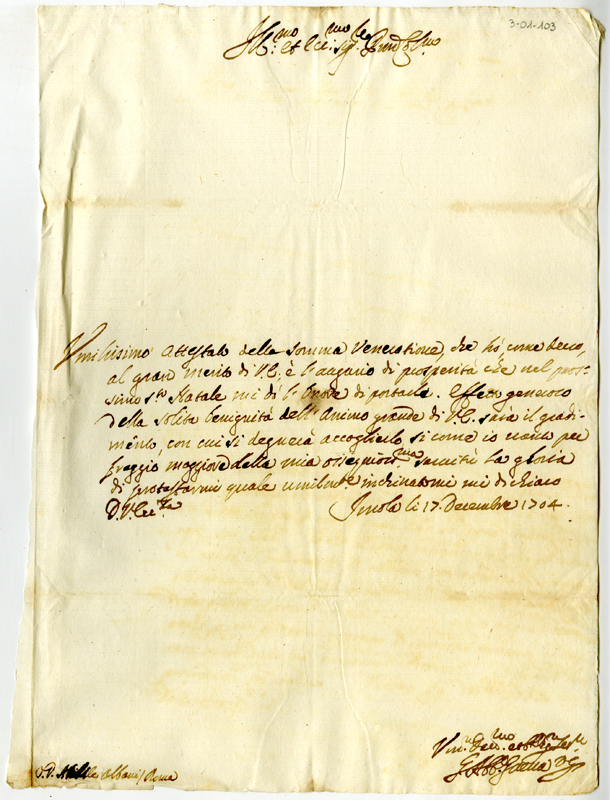 3-01-103
Ill.mo et Ecc.mo Sig.
Umilissimo attestato della somma Veneratione, che hò, come devo,
al gran merito di V.E. è l'augurio di prosperità che nel pros-
simo S.to Natale mi dò l'onore di portarle. Effetto generoso
della solita benignità dell'Animo grande di V.E. sarà il gradi-
mento, con cui si degnerà accoglierlo si come io
freggio maggiore della mia servitù la gloria
di protestarmi quale inchinatomi mi dichiaro
D. V. Ecc.za
Imola li 17. Decembre 1704.
Albani / Roma